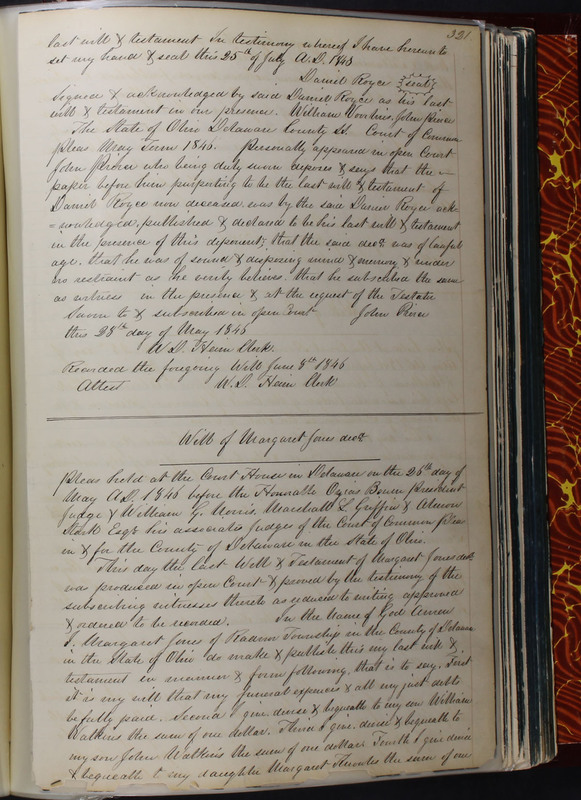 321
last will & testament In testimony whereof I have hereunto
set my hand & seal this 25th of July A.D. 1845
Daniel Royce seal
Signed & acknowledged by said Daniel Royce as his last
will & testament in our presence. William Voorhis, John Pierce
The State of Ohio Delaware County Ss Court of Common
pleas May Term 1846. Personally appeared in open Court
John Pierce who being duly sworn deposes & says that the
paper before him purporting to be the last will & testament of
Daniel Royce now deceased was by the said Daniel Royce ack-
=nowledged, published & declared to be his last will & testament
in the presence of this deponent, that the said decd. was of lawful
age, that he was of sound & disposing mind & memory & under
no restraint as he verily believes, that he subscribed the same
as witness in the presence & at the request of the Testator
Sworn to & subscribed in open Court John Pierce
this 28th day of May 1846
W.D. Heim Clerk.
Recorded the foregoing Will June 8th 1846
Attest W.D. Heim Clerk
Will of Margaret Jones decd.
Pleas held at the Court House in Delaware on the 26th day of
May A.D. 1846 before the Honorable Ozias Bowen President
Judge & William G. Norris, Marshall L. Griffin & Almon
Stark Esqs his associate Judges of the Court of Common pleas
in & for the County of Delaware in the State of Ohio.
This day the last Will & Testament of Margaret Jones decd.
was produced in open Court & proved by the testimony of the
subscribing witnesses thereto as reduced to writing approved
& ordered to be recorded. In the Name of God Amen
I, Margaret Jones of Radnor Township in the County of Delaware
in the State of Ohio do make & publish this my last will &
testament in manner & form following, that is to say. First
it is my will that my funeral expences & all my just debts
be fully paid. Second I give devise & bequeath to my son William
Watkins the sum of one dollar. Third I give, devise & bequeath to
my son John Watkins the sum of one dollar. Fourth I give devise
& bequeath to my daughter Margaret the sum of one